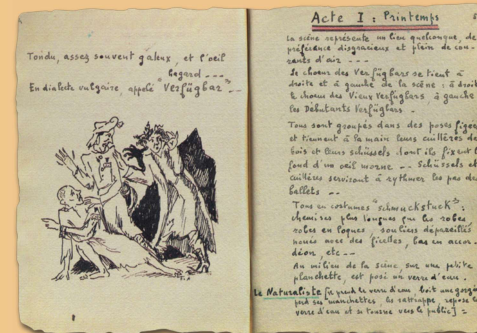 Tondu, assez souvent galeux, et l'oeil
hagard ---
En dialecte vulgaire, appelé "Verfügbar" --
Acte I : Printemps
La scène représente un lieu quelconque, de
préférence disgracieux et plein de cou-
rants d'air ---
Le choeur des Verfügbars se tient à
droite et à gauche de la scène : à droite
le choeur des Vieux Verfügbars, à gauche
les Débutants Verfügbars -
Tous sont groupés dans des poses figées
et tiennent à la main leurs cuillères de
bois et leurs schüssels dont ils fixent le
fond d'un oeil morne -- Schüssels et
cuillères serviront à rythmer les pas de
ballets --
Tous en costumes "schmuckstück" :
chemises plus longues que les robes,
robes en loques, souliers dépareillés
noués avec des ficelles, bas en accor-
déon, etc --
Au milieu de la scène sur une petite
planchette, est posé un verre d'eau.
Le Naturaliste [il prend le verre d'eau, boit une gorgée
perd ses manchettes, les rattrape, repose le
verre d'eau et se tourne vers le public] =